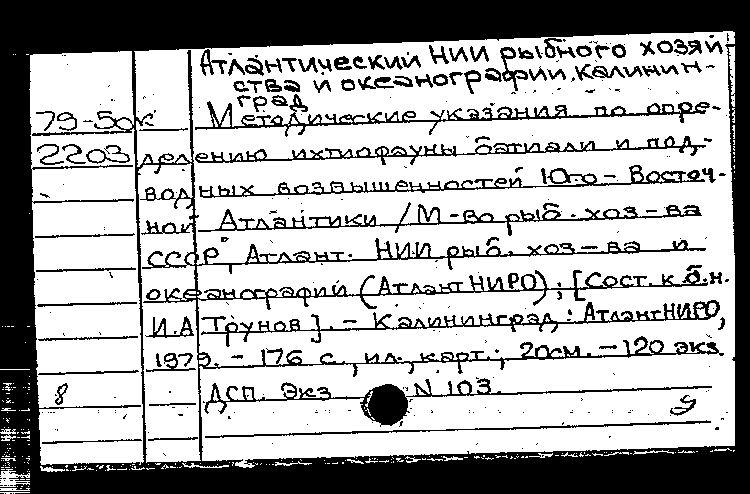 Атлантический НИИ рыбного хозяй-
ства и океанографии, Калинин-
град
79-50к Методические указания по опре-
2203 делению ихтиофауны батиали и под-
водных возвышенностей Юго-Восточ-
ной Атлантики / М-во рыб. хоз-ва
СССР, Атлант. НИИ рыб. хоз-ва и
океанографии (АтлантНИРО); [Сост. к.б.н.
И.А Трунов]. - Калининград: АтлантНИРО,
1979. - 176 с., ил., карт.; 20см. - 120 экз.
8 ДСП. Экз N 103.